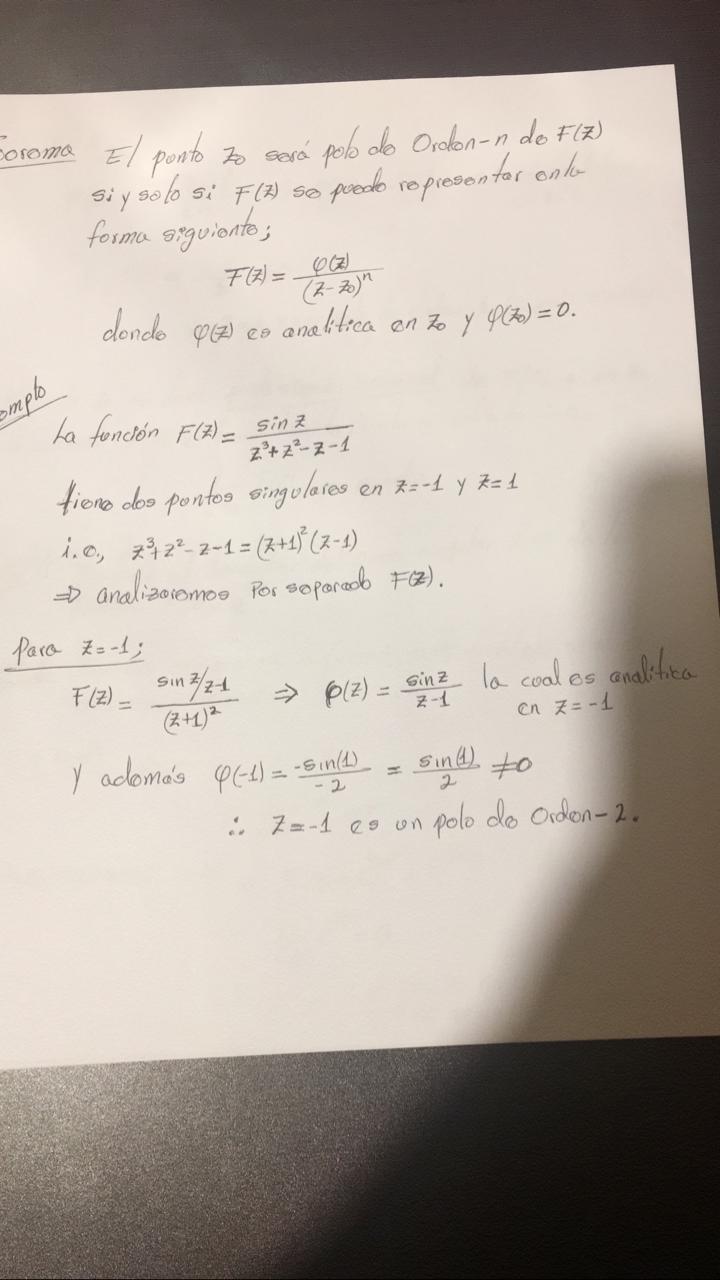 Teorema El punto z₀ será polo de Orden-n de F(z)
si y solo si F(z) se puede representar en la
forma siguiente;
F(z) = φ(z)/(z-z₀)ⁿ
donde φ(z) es analítica en z₀ y φ(z₀) = 0.
emplo
La función F(z) = sin z/(z³+z²-z-1)
tiene dos puntos singulares en z=-1 y z=1
i.e., z³+z²-z-1 = (z+1)²(z-1)
⇒ analizaremos Por separado F(z).
Para z=-1;
F(z) = (sin z/z-1)/(z+1)² ⇒ φ(z) = sin z/(z-1) la cual es analítica
en z=-1
Y además φ(-1) = -sin(1)/-2 = sin(1)/2 ≠0
∴ z=-1 es un polo de Orden-2.